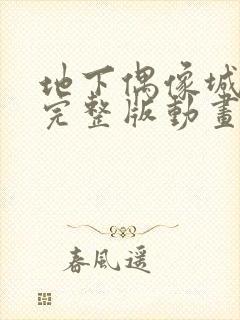 地下偶像城
完整版動畫
春風遥